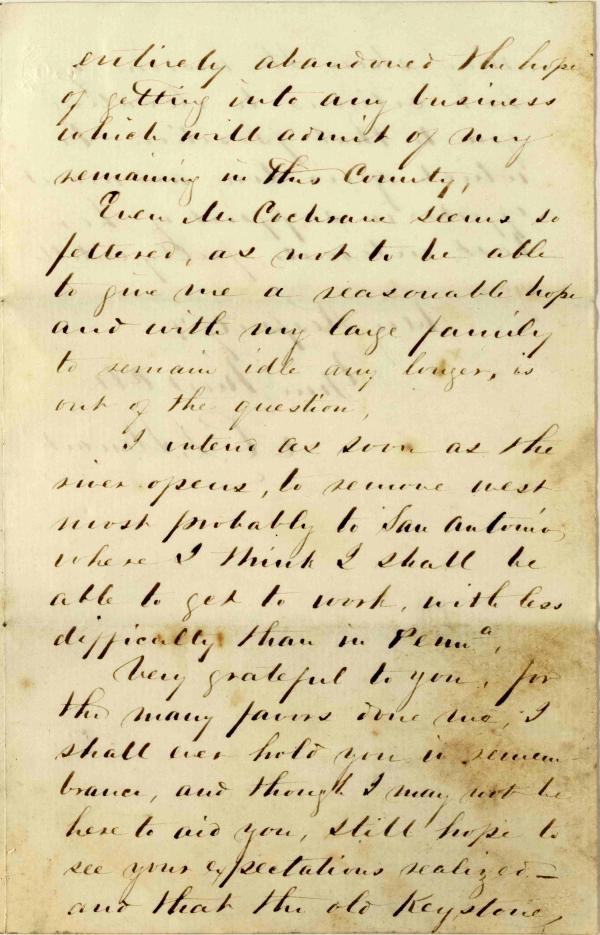 entirely abandoned the hope
of getting into any business
which will admit of my
remaining in this County,
Even Mr Cochrane seems so
fettered, as not to be able
to give me a reasonable hope
and with my large family
to remain idle any longer, is
out of the question,
I intend as soon as the
river opens, to remove west
most probably to San Antonio,
where I think I shall be
able to get to work, with less
difficulty than in Pennª,
Very grateful to you, for
the many favors done me, I
shall ever hold you in remem-
brance, and though I may not be
here to aid you, still hope to
see your expectations realized—
and that the old Keystone,